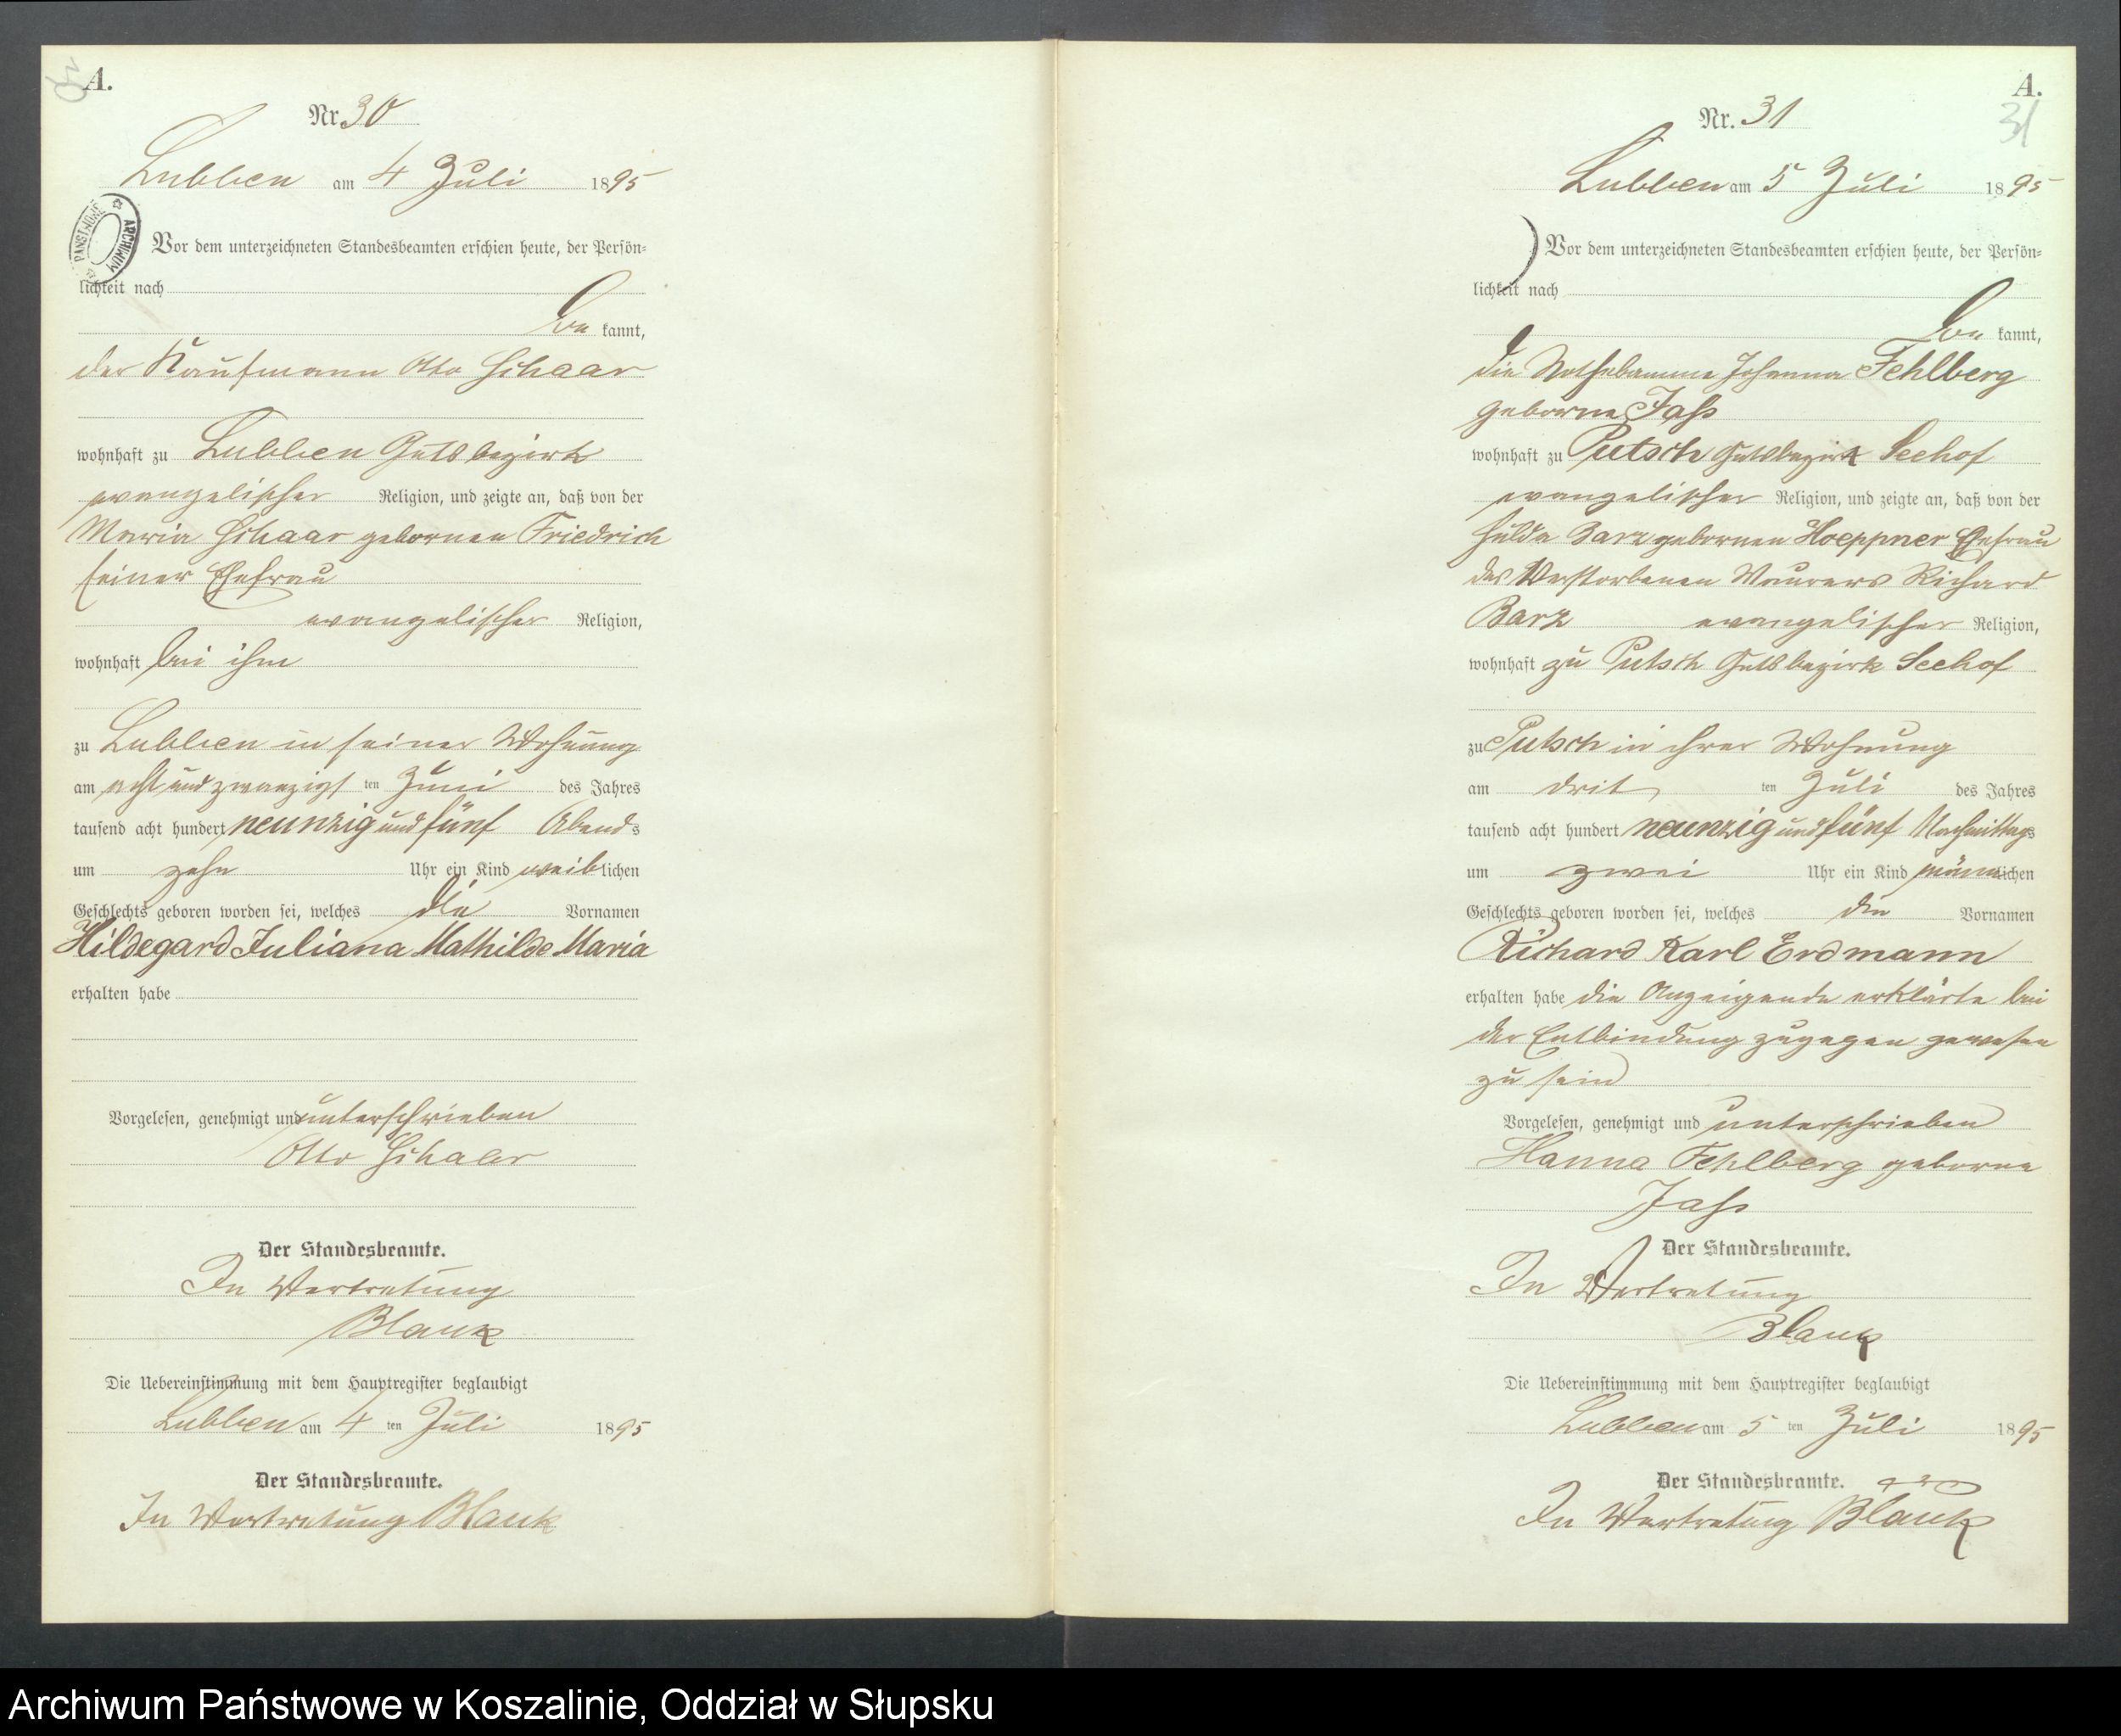 A.
30
Nr. 30
Lubben am 4 Juli 1895
ARCHIWUM PAŃSTWOWE
Vor dem unterzeichneten Standesbeamten erschien heute, der Persön-
lichkeit nach
be kannt,
der Kaufmann Otto Schaar
wohnhaft zu Lubben Gutsbezirk
evangelischer Religion, und zeigte an, daß von der
Maria Schaar gebornen Friedrich
seiner Ehefrau
evangelischer Religion,
wohnhaft bei ihm
zu Lubben in seiner Wohnung
am acht und zwanzigs ten Juni des Jahres
tausend acht hundert neunzig und fünf Abends
um zehn Uhr ein Kind weiblichen
Geschlechts geboren worden sei, welches die Vornamen
Hildegard Juliana Mathilde Maria
erhalten habe
Vorgelesen, genehmigt und unterschrieben
Otto Schaar
Der Standesbeamte.
In Vertretung
Blank
Die Uebereinstimmung mit dem Hauptregister beglaubigt
Lubben am 4 ten Juli 1895
Der Standesbeamte.
In Vertretung Blank
A.
31
Nr. 31
Lubben am 5 Juli 1895
Vor dem unterzeichneten Standesbeamten erschien heute, der Persön-
lichkeit nach
be kannt,
die Hebamme Johanna Fehlberg
geborne Jass
wohnhaft zu Putsch Gutsbezirk Seehof
evangelischer Religion, und zeigte an, daß von der
Hulda Barz gebornen Hoeppner Ehefrau
des Verstorbenen Maurers Richard
Barz evangelischer Religion,
wohnhaft zu Putsch Gutsbezirk Seehof
zu Putsch in ihrer Wohnung
am drit ten Juli des Jahres
tausend acht hundert neunzig und fünf Nachmittags
um zwei Uhr ein Kind männlichen
Geschlechts geboren worden sei, welches die Vornamen
Richard Karl Erdmann
erhalten habe die Anzeigende erklärte bei
der Entbindung zugegen gewesen
zu sein
Vorgelesen, genehmigt und unterschrieben
Hanna Fehlberg geborne
Jass
Der Standesbeamte.
In Vertretung
Blank
Die Uebereinstimmung mit dem Hauptregister beglaubigt
Lubben am 5 ten Juli 1895
Der Standesbeamte.
In Vertretung Blank
Archiwum Państwowe w Koszalinie, Oddział w Słupsku